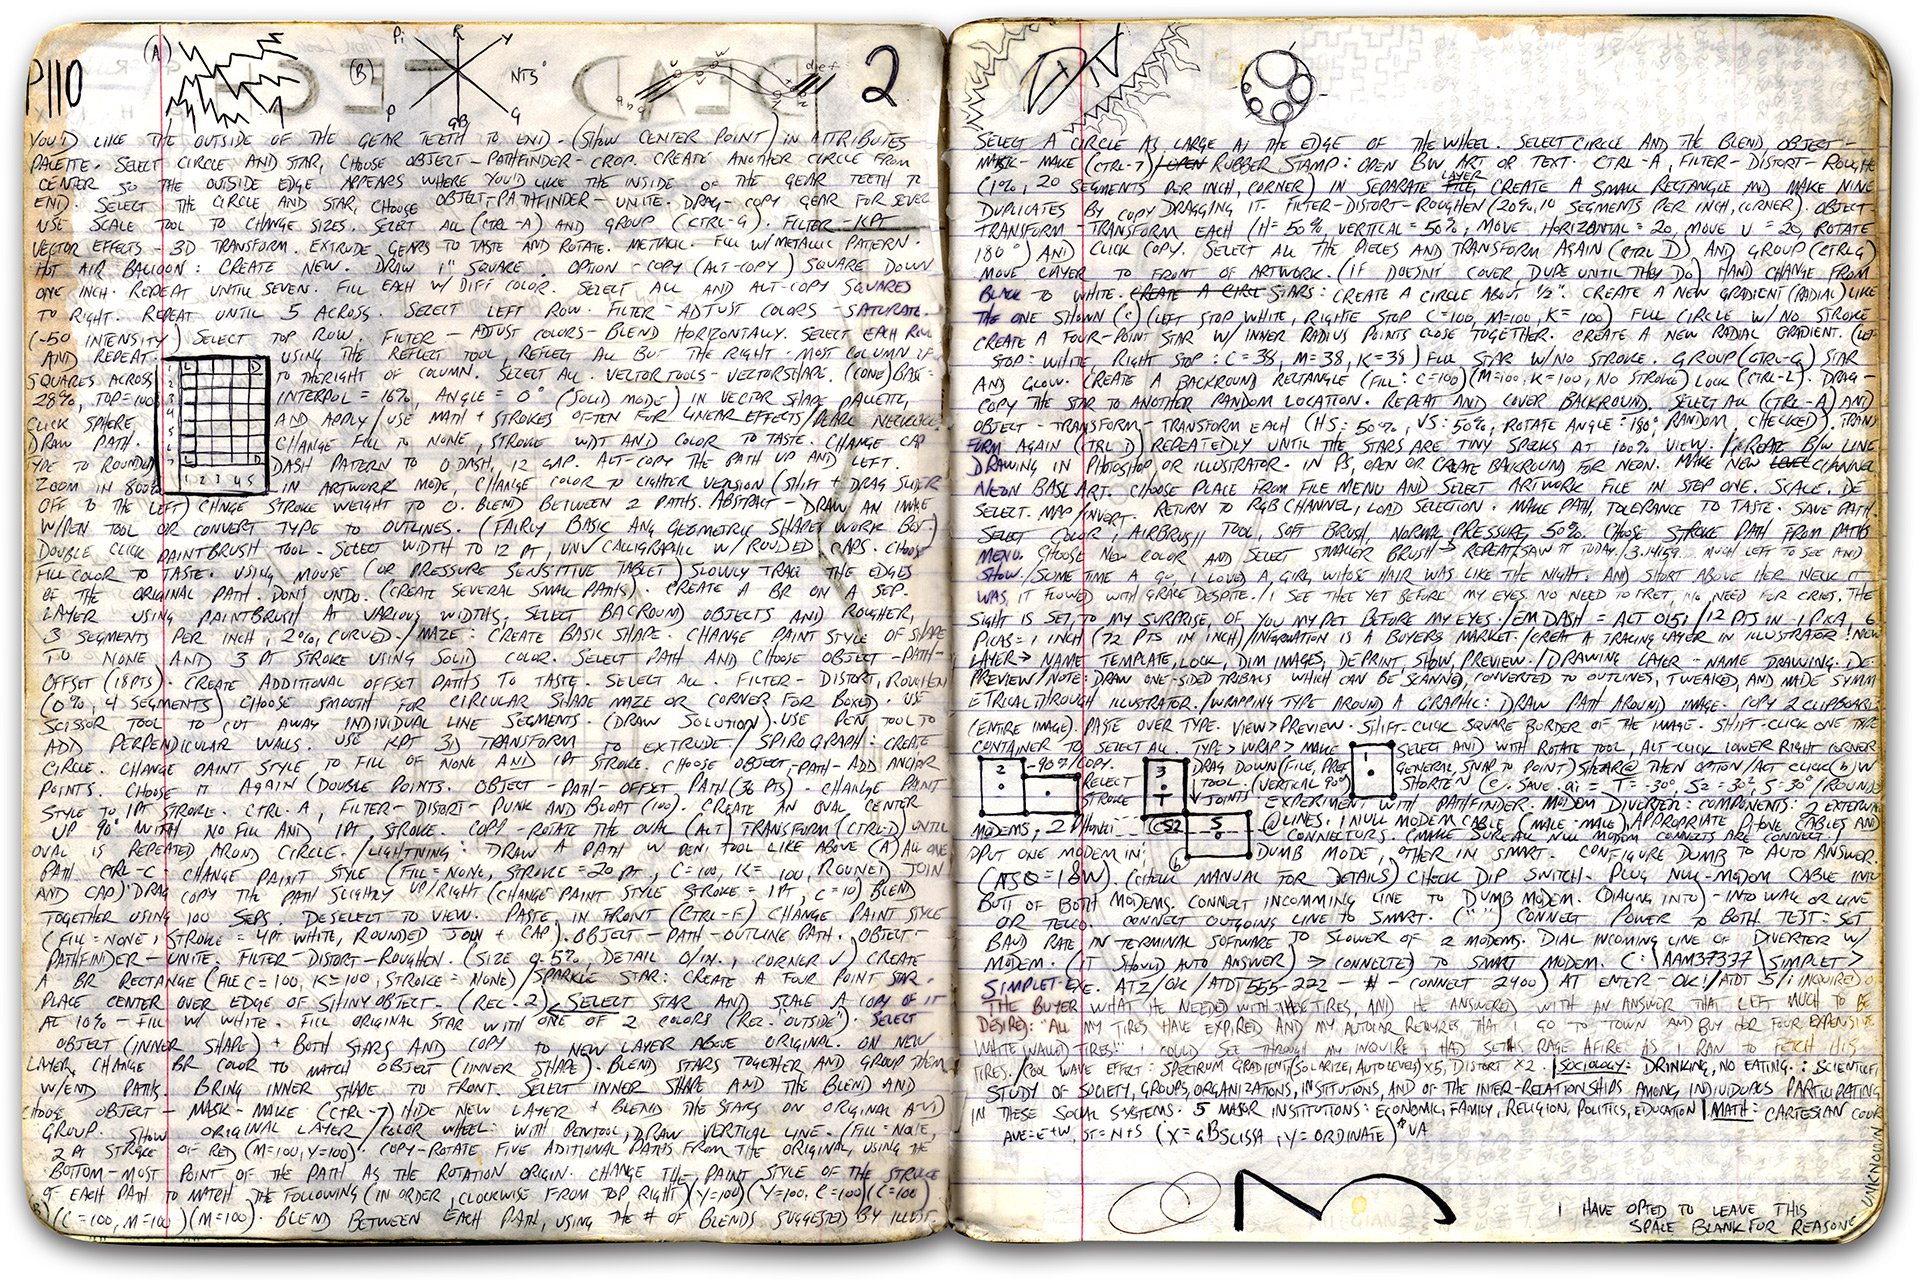 P110
(A)
(B)
Pi
R
Y
NTS°
P
GB
G
2
YOU'D LIKE THE OUTSIDE OF THE GEAR TEETH TO END - (SHOW CENTER POINT) IN ATTRIBUTES
PALETTE. SELECT CIRCLE AND STAR, CHOOSE OBJECT - PATHFINDER - CROP. CREATE ANOTHER CIRCLE FROM
CENTER SO THE OUTSIDE EDGE APPEARS WHERE YOU'D LIKE THE INSIDE OF THE GEAR TEETH TO
END. SELECT THE CIRCLE AND STAR, CHOOSE OBJECT-PATHFINDER - UNITE. DRAG-COPY GEAR FOR SEVER
USE SCALE TOOL TO CHANGE SIZES. SELECT ALL (CTRL-A) AND GROUP (CTRL-G). FILTER - KPT
VECTOR EFFECTS - 3D TRANSFORM. EXTRUDE GEARS TO TASTE AND ROTATE. METALLIC. FILL W/METALLIC PATTERN.
HOT AIR BALLOON: CREATE NEW. DRAW 1" SQUARE. OPTION - COPY (ALT-COPY) SQUARE DOWN
ONE INCH. REPEAT UNTIL SEVEN. FILL EACH W/ DIFF COLOR. SELECT ALL AND ALT-COPY SQUARES
TO RIGHT. REPEAT UNTIL 5 ACROSS. SELECT LEFT ROW. FILTER - ADJUST COLORS - SATURATE.
(-50 INTENSITY) SELECT TOP ROW. FILTER - ADJUST COLORS - BLEND HORIZONTALLY. SELECT EACH ROW
AND REPEAT. USING THE REFLECT TOOL, REFLECT ALL BUT THE RIGHT-MOST COLUMN IF
SQUARES ACROSS TO THE RIGHT OF COLUMN. SELECT ALL. VECTOR TOOLS - VECTORSHAPE. (CONE) BASE=
28%, TOP=100% INTERPOL = 16%, ANGLE = 0° (SOLID MODE) IN VECTOR SHAPE PALETTE,
CLICK SPHERE AND APPLY/USE MATH + STROKES OFTEN FOR LINEAR EFFECTS/PEARL NECKLACE:
DRAW PATH. CHANGE FILL TO NONE, STROKE WDT AND COLOR TO TASTE. CHANGE CAP
TYPE TO ROUNDED DASH PATERN TO 0 DASH, 12 GAP. ALT-COPY THE PATH UP AND LEFT.
ZOOM IN 800% IN ARTWORK MODE, CHANGE COLOR TO LIGHTER VERSION (SHIFT + DRAG SLIDER
1 2 3 4 5
OFF TO THE LEFT) CHNGE STROKE WEIGHT TO 0. BLEND BETWEEN 2 PATHS. ABSTRACT - DRAW AN IMAGE
W/PEN TOOL OR CONVERT TYPE TO OUTLINES. (FAIRLY BASIC ANG GEOMETRIC SHAPES WORK BEST)
DOUBLE CLICK PAINTBRUSH TOOL - SELECT WIDTH TO 12 PT, UNV CALLIGRAPHIC W/ ROUDED CAPS. CHOOSE
FILL COLOR TO TASTE. USING MOUSE (OR PRESSURE SENSITIVE TABLET) SLOWLY TRACE THE EDGES
OF THE ORIGINAL PATH. DON'T UNDO. (CREATE SEVERAL SMALL PATHS). CREATE A BR ON A SEP.
LAYER USING PAINTBRUSH AT VARIOUS WIDTHS, SELECT BACROUND OBJECTS AND ROUGHEN,
3 SEGMENTS PER INCH, 2%, CURVED./MAZE: CREATE BASIC SHAPE. CHANGE PAINT STYLE OF SHAPE
TO NONE AND 3 PT STROKE USING SOLID COLOR. SELECT PATH AND CHOOSE OBJECT -PATH-
OFFSET (18PTS). CREATE ADDITIONAL OFFSET PATHS TO TASTE. SELECT ALL. FILTER - DISTORT, ROUGHEN
(0%, 4 SEGMENTS) CHOOSE SMOOTH FOR CIRCULAR SHAPE MAZE OR CORNER FOR BOXED. USE
SCISSOR TOOL TO CUT AWAY INDIVIDUAL LINE SEGMENTS. (DRAW SOLUTION). USE PEN TOOL TO
ADD PERPENDICULAR WALLS. USE KPT 3D TRANSFORM TO EXTRUDE/SPIROGRAPH: CREATE
CIRCLE. CHANGE PAINT STYLE TO FILL OF NONE AND 1PT STROKE. CHOOSE OBJECT-PATH- ADD ANCHOR
POINTS. CHOOSE IT AGAIN (DOUBLE POINTS. OBJECT - PATH - OFFSET PATH (36 PTS). CHANGE PAINT
STYLE TO 1PT STROKE. CTRL-A, FILTER-DISTORT- PUNK AND BLOAT (100). CREATE AN OVAL CENTER
UP 90° WITH NO FILL AND 1PT STROKE. COPY-ROTATE THE OVAL (ALT) TRANSFORM (CTRL-D) UNTIL
OVAL IS REPEATED AROND CIRCLE./LIGHTNING: DRAW A PATH W PEN TOOL LIKE ABOVE (A) ALL ONE
PATH CTRL-C CHANGE PAINT STYLE (FILL=NONE, STROKE=20 PT, C=100, K= 100, ROUND) JOIN
AND CAP) DRAG COPY THE PATH SLIGHTLY UP/RIGHT (CHANGE PAINT STYLE STROKE = 1PT, C=10) BLEND
TOGETHER USING 100 SEPS, DESELECT TO VIEW. PASTE IN FRONT (CTRL-F) CHANGE PAINT STYLE
(FILL=NONE, STROKE = 4PT WHITE, ROUNDED JOIN + CAP). OBJECT - PATH - OUTLINE PATH. OBJECT-
PATHFINDER - UNITE. FILTER-DISTORT-ROUGHEN. (SIZE 9.5%, DETAIL 0/IN., CORNER √) CREATE
A BR RECTANGLE (FILL C=100, K=100, STROKE=NONE)/SPARKLE STAR: CREATE A FOUR POINT STAR.
PLACE CENTER OVER EDGE OF SHINY OBJECT. (REC-2) SELECT STAR AND SCALE A COPY OF IT
AT 10% - FILL W/ WHITE. FILL ORIGINAL STAR WITH ONE OF 2 COLORS (REC. "OUTSIDE"). SELECT
OBJECT (INNER SHAPE) + BOTH STARS AND COPY TO NEW LAYER ABOVE ORIGINAL. ON NEW
LAYER, CHANGE BR COLOR TO MATCH OBJECT (INNER SHAPE). BLEND STARS TOGETHER AND GROUP THEM
W/END PATHS. BRING INNER SHAPE TO FRONT. SELECT INNER SHAPE AND THE BLEND AND
CHOOSE OBJECT - MASK-MAKE (CTRL-7) HIDE NEW LAYER + BLEND THE STARS ON ORIGINAL AND
GROUP. SHOW ORIGINAL LAYER/COLOR WHEEL: WITH PENTOOL, DRAW VERTICAL LINE. (FILL=NONE,
2 PT STROKE OF RED (M=100, Y=100). COPY-ROTATE FIVE ADITIONAL PATHS FROM THE ORIGINAL, USING THE
BOTTOM-MOST POINT OF THE PATH AS THE ROTATION ORIGIN. CHANGE THE PAINT STYLE OF THE STROKE
OF EACH PATH TO MATCH THE FOLLOWING (IN ORDER, CLOCKWISE FROM TOP RIGHT) (Y=100) (Y=100, C=100) (C=100)
(C=100, M=100) (M=100). BLEND BETWEEN EACH PATH, USING THE # OF BLENDS SUGGESTED BY ILLUST.
SELECT A CIRCLE AS LARGE AS THE EDGE OF THE WHEEL. SELECT CIRCLE AND THE BLEND, OBJECT-
MASK- MAKE (CTRL-7) RUBBER STAMP: OPEN B/W ART OR TEXT. CTRL-A, FILTER-DISTORT-ROUGHE
(1%, 20 SEGMENTS PER INCH, CORNER) IN SEPARATE LAYER, CREATE A SMALL RECTANGLE AND MAKE NINE
DUPLICATES BY COPY DRAGGING IT. FILTER-DISTORT-ROUGHEN (20%, 10 SEGMENTS PER INCH, CORNER). OBJECT-
TRANSFORM - TRANSFORM EACH (H=50%, VERTICAL=50%, MOVE HORIZANTAL=20, MOVE V=20, ROTATE
180°) AND CLICK COPY. SELECT ALL THE PIECES AND TRANSFORM AGAIN (CTRL D) AND GROUP (CTRL G)
MOVE LAYER TO FRONT OF ARTWORK. (IF DOESN'T COVER DUPE UNTIL THEY DO) HAND CHANGE FROM
BLACK TO WHITE. CREATE A CIRCL STARS: CREATE A CIRCLE ABOUT ½". CREATE A NEW GRADIENT (RADIAL) LIKE
THE ONE SHOWN (C) (LEFT STOP WHITE, RIGHTE STOP C=100, M=100, K=100) FILL CIRCLE W/ NO STROKE
CREATE A FOUR-POINT STAR W/ INNER RADIUS POINTS CLOSE TOGETHER. CREATE A NEW RADIAL GRADIENT. (LEF
STOP: WHITE, RIGHT STOP: C=38, M=38, K=38) FILL STAR W/NO STROKE. GROUP (CTRL-G) STAR
AND GLOW. CREATE A BACKROUND RECTANGLE (FILL: C=100) (M=100, K=100, NO STROKE) LOCK (CTRL-2). DRAG-
COPY THE STAR TO ANOTHER RANDOM LOCATION. REPEAT AND COVER BACKGROUND. SELECT ALL (CTRL-A) AND
OBJECT - TRANSFORM - TRANSFORM EACH (HS: 50%, VS: 50%, ROTATE ANGLE=180°, RANDOM, CHECKED). TRANS
FORM AGAIN (CTRL D) REPEATEDLY UNTIL THE STARS ARE TINY SPECKS AT 100% VIEW. / CREATE B/W LINE
DRAWING IN PHOTOSHOP OR ILLUSTRATOR. IN PS, OPEN OR CREATE BACKROUND FOR NEON. MAKE NEW CHANNEL
NEON BASE ART. CHOOSE PLACE FROM FILE MENU AND SELECT ARTWORK FILE IN STEP ONE. SCALE. DE
SELECT. MAP/INVERT. RETURN TO RGB CHANNEL, LOAD SELECTION. MAKE PATH, TOLERANCE TO TASTE. SAVE PATH.
SELECT COLOR, AIRBRUSH TOOL, SOFT BRUSH, NORMAL PRESSURE, 50%. CHOSE STROKE PATH FROM PATHS
MENU. CHOOSE NEW COLOR AND SELECT SMALLER BRUSH → REPEAT/SAW IT TODAY./3.14159. MUCH LEFT TO SEE AND
SHOW./SOME TIME A GO, I LOVED A GIRL WHOSE HAIR WAS LIKE THE NIGHT. AND SHORT ABOVE HER NECK IT
WAS, IT FLOWED WITH GRACE DESPITE./I SEE THEE YET BEFORE MY EYES. NO NEED TO FRET, NO NEED FOR CRIES, THE
SIGHT IS SET, TO MY SURPRISE, OF YOU MY PET BEFORE MY EYES./EM DASH = ALT 0151/12 PTS IN 1 PICA, 6
PICAS=1 INCH (72 PTS IN INCH)/INFORMATION IS A BUYERS MARKET./CREAT A TRACING LAYER IN ILLUSTRATOR! NEW
LAYER→ NAME TEMPLATE, LOCK, DIM IMAGES, DEPRINT, SHOW, PREVIEW./DRAWING LAYER - NAME DRAWING. DE-
PREVIEW/NOTE: DRAW ONE-SIDED TRIBALS WHICH CAN BE SCANNED, CONVERTED TO OUTLINES, TWEAKED, AND MADE SYMM
ETRICAL THROUGH ILLUSTRATOR./WRAPPING TYPE AROUND A GRAPHIC: DRAW PATH AROUND IMAGE. COPY 2 CLIPBOARD
(ENTIRE IMAGE). PASTE OVER TYPE. VIEW>PREVIEW. SHIFT-CLICK SQUARE BORDER OF THE IMAGE. SHIFT-CLICK ONE TYPE
CONTAINER TO SELECT ALL. TYPE>WRAP>MAKE SELECT AND WITH ROTATE TOOL, ALT-CLICK LOWER RIGHT CORNER
2 -90°/COPY. 3 DRAG DOWN (FILE, PREF 1 GENERAL, SNAP TO POINT) SHEAR@ THEN OPTION/ALT CLICK (b) W
RELECT TOOL (VERTICAL 90°) SHORTEN
STROKE T JOINTS EXPERIMENT WITH PATHFINDER. MODEM DIVERTER: COMPONENTS: 2 EXTERNAL
MODEMS, 2 (S2 5 @LINES. 1 NULL MODEM CABLE (MALE-MALE) APPROPRIATE PHONE CABLES AND
CONNECTORS. (MAKE SURE NULL MODEM CONNECTS ARE CORRECT.)
PUT ONE MODEM IN DUMB MODE, OTHER IN SMART. CONFIGURE DUMB TO AUTO ANSWER.
(CHECK MANUAL FOR DETAILS) CHECK DIP SWITCH. PLUG NULL-MODEM CABLE INTO
BUTT OF BOTH MODEMS. CONNECT INCOMMING LINE TO DUMB MODEM. (DIALING INTO) - INTO WALL OR LINE
OR TELCO. CONNECT OUTGOING LINE TO SMRT. (" ") CONNECT POWER TO BOTH TEST: SET
BAUD RATE IN TERMINAL SOFTWARE TO SLOWER OF 2 MODEMS. DIAL INCOMING LINE OF DIVERTER W/
MODEM. (IT SHOULD AUTO ANSWER) → CONNECTED TO SMART MODEM. C:\AAM37337\SIMPLET>
SIMPLET.EXE. ATZ/OK/ATDT555-222 - # - CONNECT 2400) AT ENTER - OK!/ATDT 5/I INQUIRED OF
THE BUYER WHAT HE NEEDED WITH THESE TIRES, AND HE ANSWERED WITH AN ANSWER THAT LEFT MUCH TO BE
DESIRED: "ALL MY TIRES HAVE EXPIRED AND MY AUTOCAR REQUIRES THAT I GO TO TOWN AND BUY HER FOUR EXPENSIVE
WHITE WALLED TIRES!" I COULD SEE THROUGH MY INQUIRE I HAD SET HIS RAGE AFIRE AS I RAN TO FETCH HIS
TIRES./COOL WAVE EFFECT: SPECTRUM GRADIENT (SOLARIZE, AUTO LEVEL) X5, DISTORT X2. SOCIOLOGY: DRINKING, NO EATING.: SCIENTIFI
STUDY OF SOCIETY, GROUPS, ORGANIZATIONS, INSTITUTIONS, AND OF THE INTER-RELATIONSHIPS AMONG INDIVIDUALS PARTICIPATING
IN THESE SOCIAL SYSTEMS. 5 MAJOR INSTITUTIONS: ECONOMIC, FAMILY, RELIGION, POLITICS, EDUCATION | MATH: CARTESIAN COOR
AVE=E+W, ST=N+S (X=ABSCISSA, Y=ORDINATE)
3
I HAVE OPTED TO LEAVE THIS
SPACE BLANK FOR REASONS
UNKNOWN